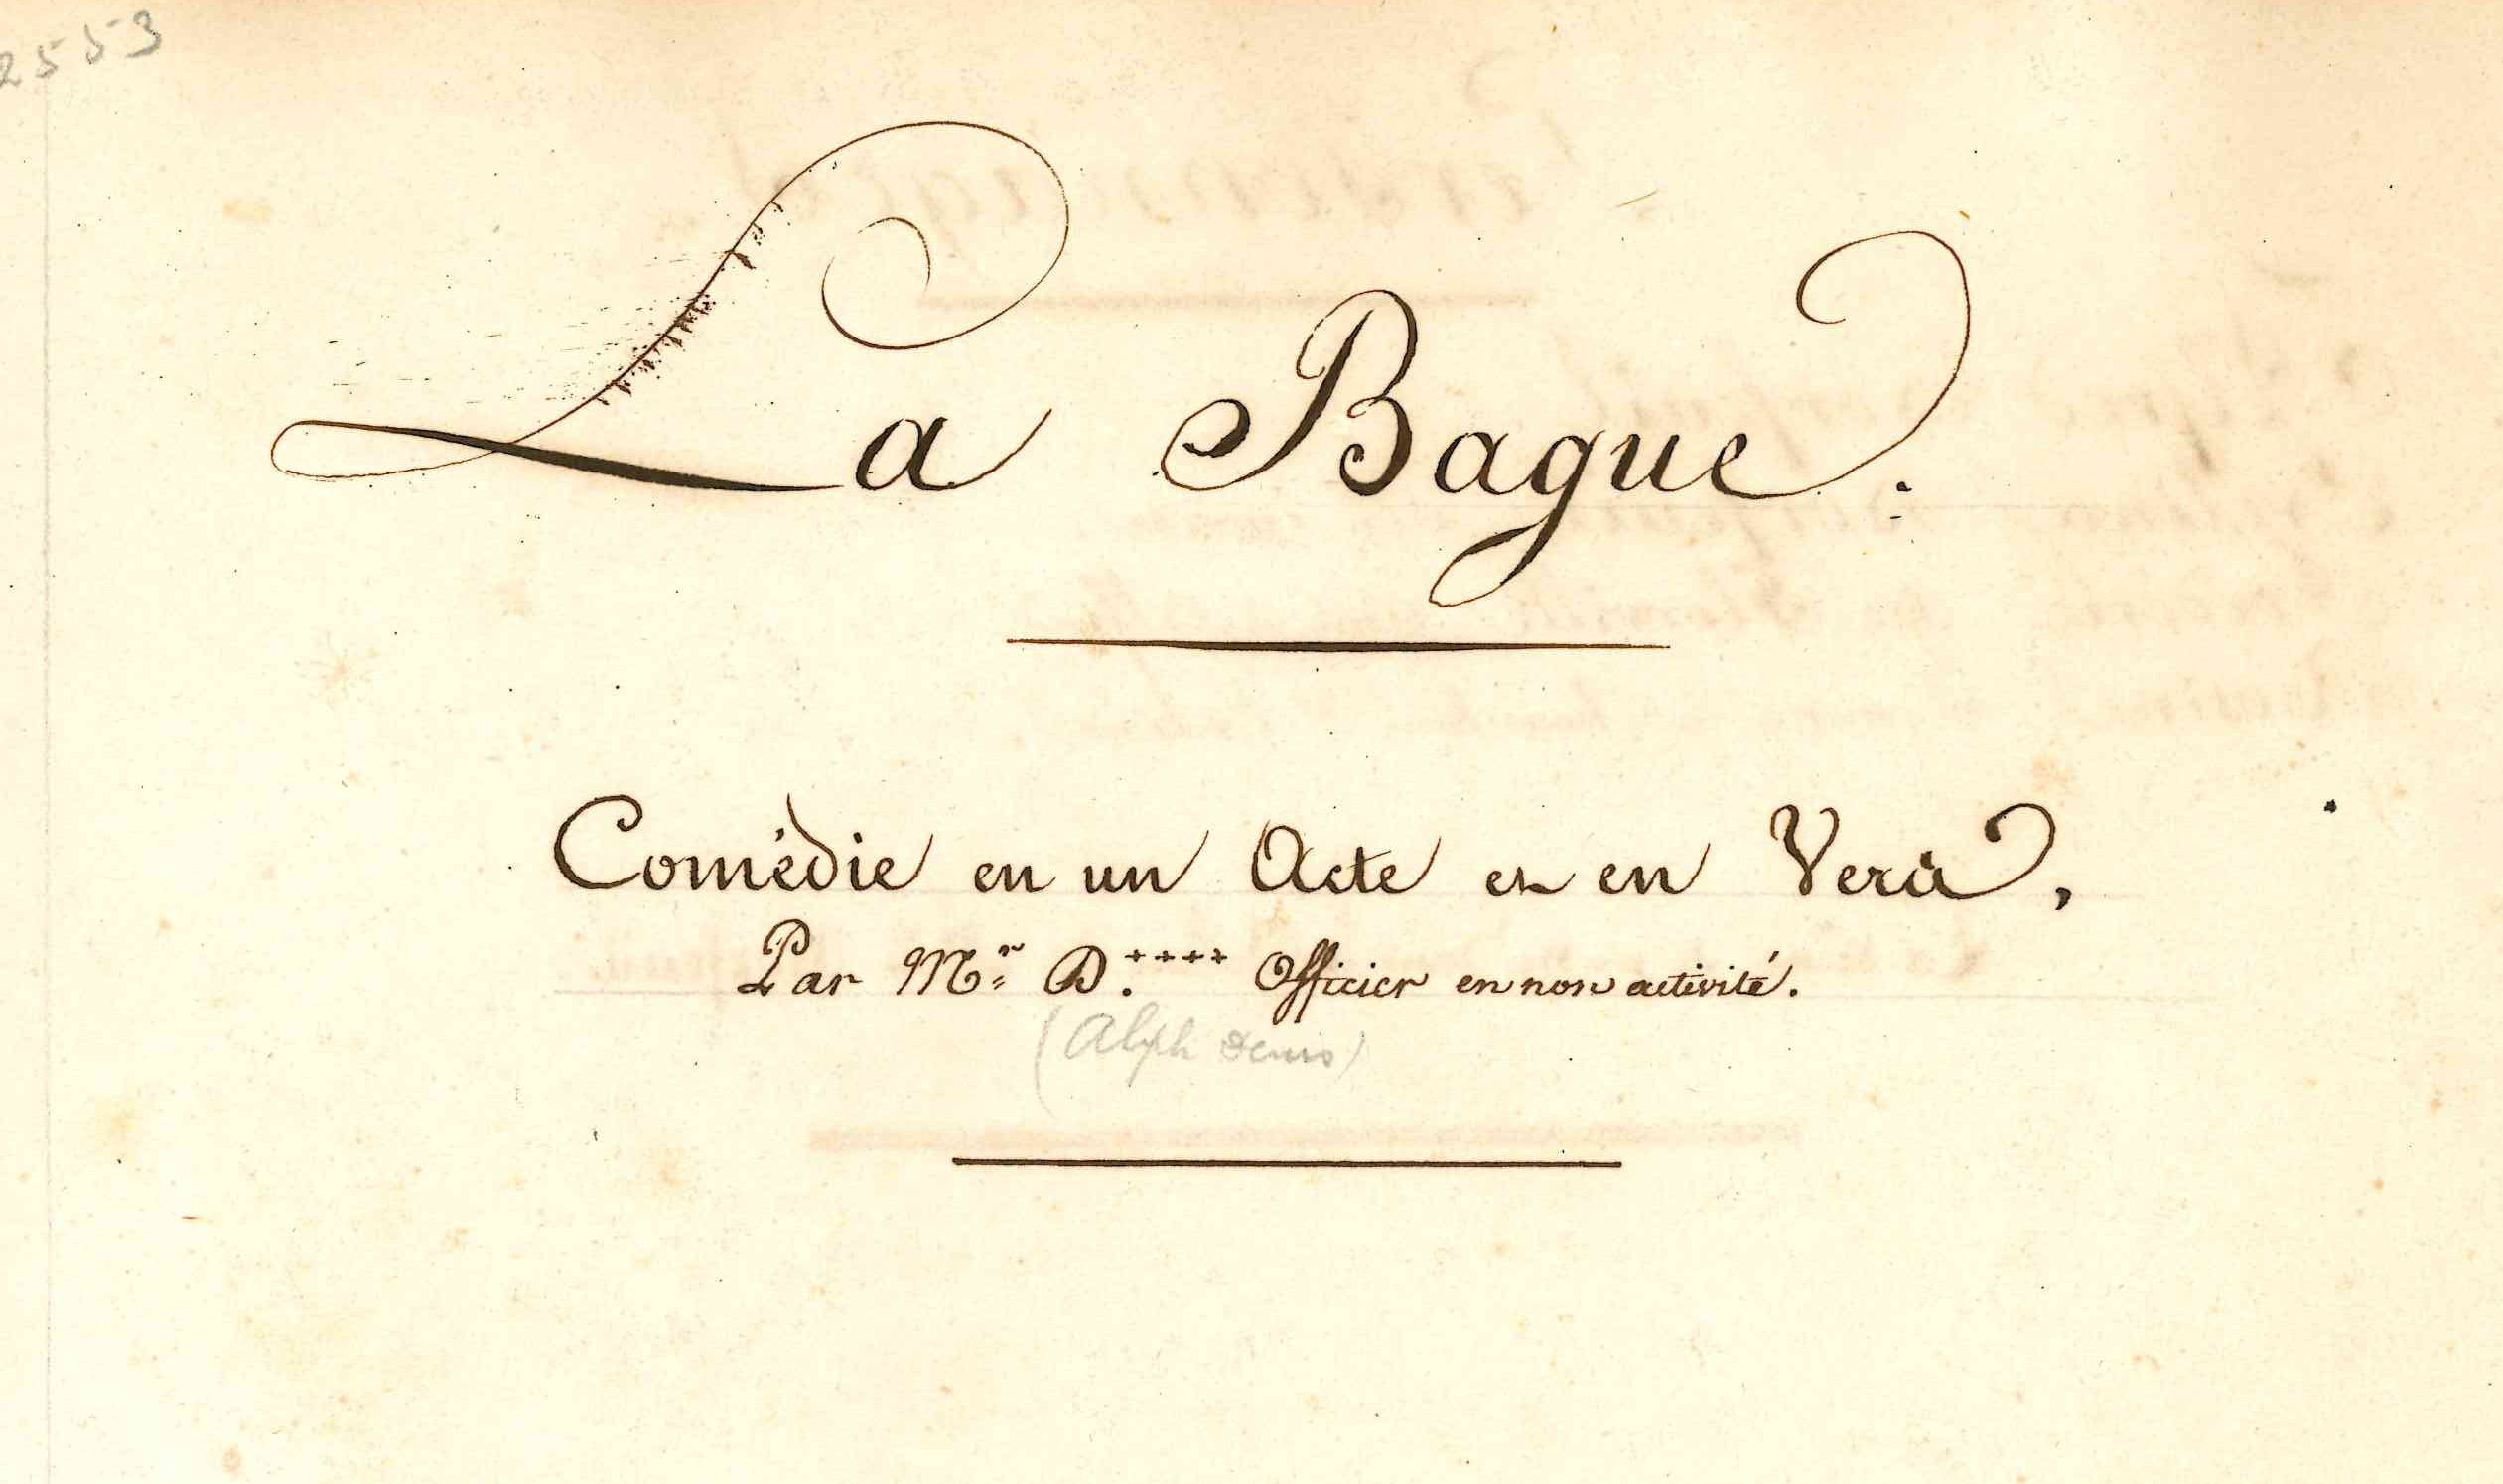 2553
La Bague.
Comédie en un Acte et en Vers,
Par Mr. D.**** Officier en non activité.
(Alph Denis)